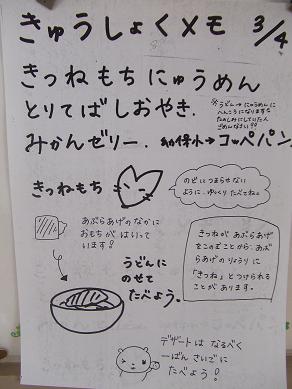 きゅうしょくメモ 3/4
きつねもちにゅうめん
とりてばしおやき.
※うどん→にゅうめんに
へんこうになります
たのしみにしていた人
ごめんなさい!!
みかんゼリー. 幼保小→コッペパン
きつねもち
のどにつまらせない
ように、ゆっくりたべてね。
あぶらあげのなかに
おもちがはいって
います!
うどんに
のせて
たべよう。
きつねがあぶらあげ
をこのむことから、あぶ
らあげのりょうりに
「きつね」とつけられる
ことがあります。
デザートはなるべく
一ばんさいごに
たべよう!